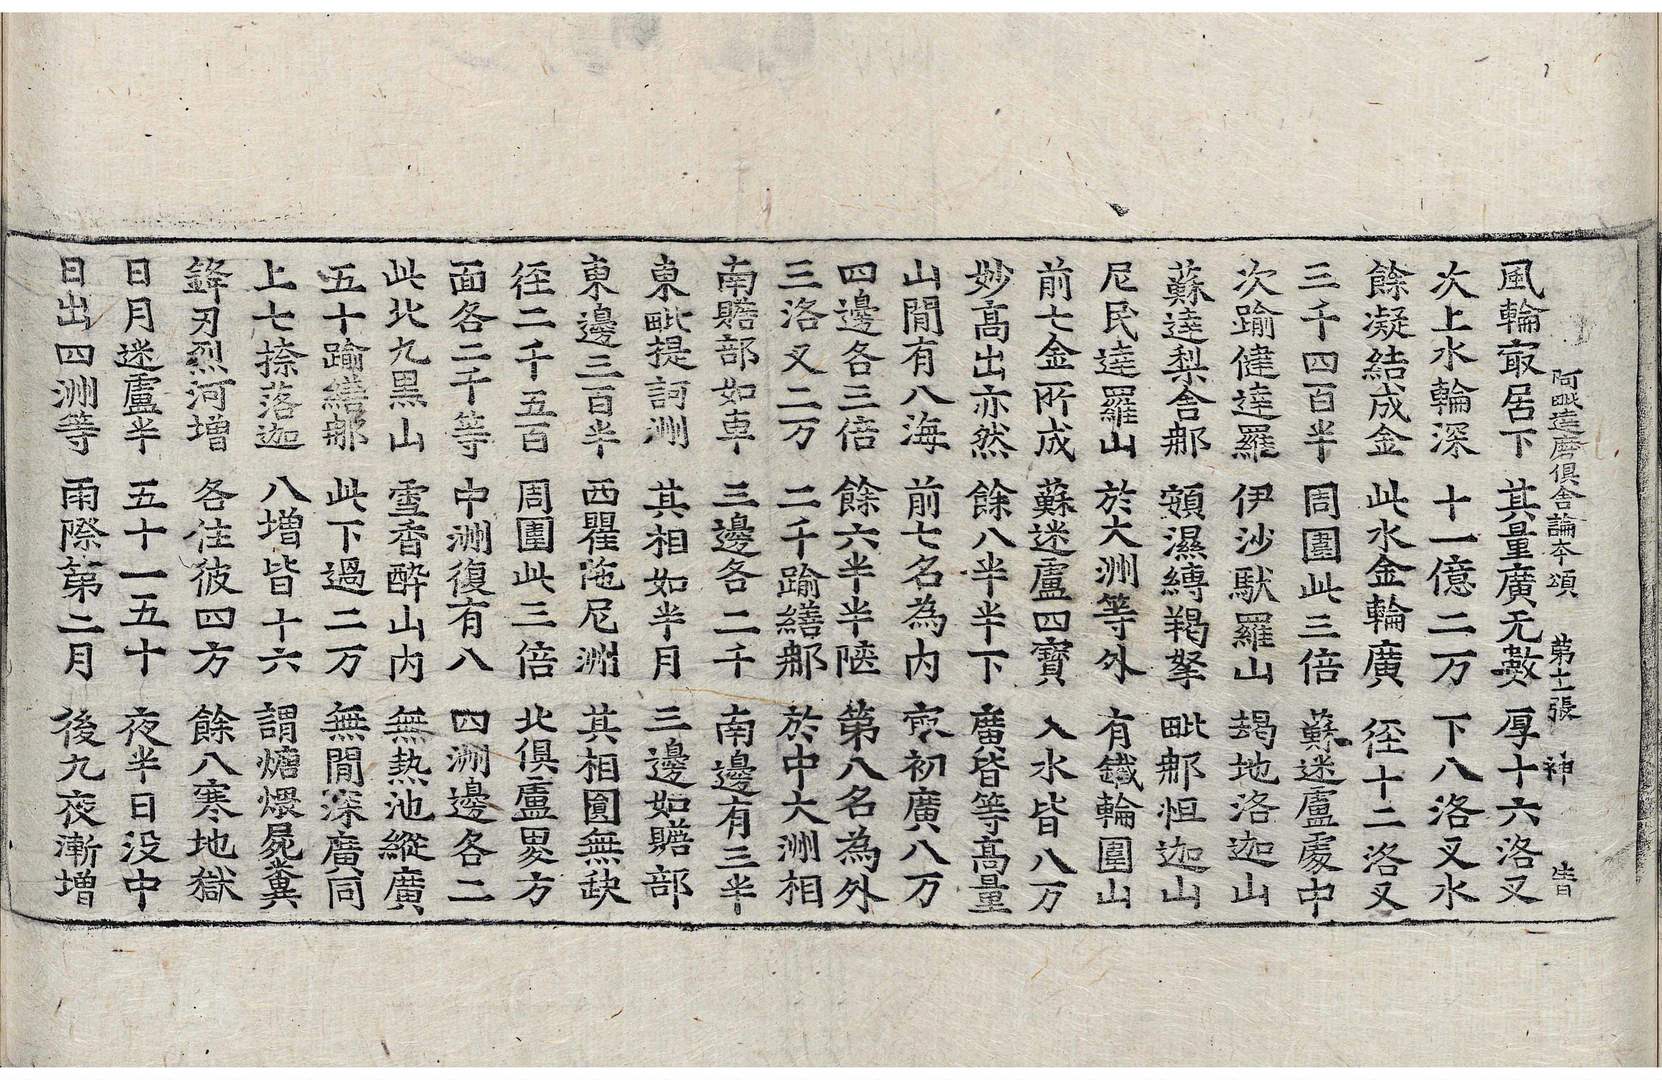 阿毗達磨俱舍論本頌 第十一張 神
風輪冣居下 其量廣无數 厚十六洛叉
次上水輪深 十一億二万 下八洛叉水
餘凝結成金 此水金輪廣 徑十二洛叉
三千四百半 周圍此三倍 蘇迷盧處中
次踰健達羅 伊沙馱羅山 朅地洛迦山
蘇達梨舍那 頞濕縛羯拏 毗那怛迦山
尼民達羅山 於大洲等外 有鐵輪圍山
前七金所成 蘇迷盧四寶 入水皆八万
妙高出亦然 餘八半半下 廣皆等高量
山閒有八海 前七名為內 冣初廣八万
四邊各三倍 餘六半半陿 第八名為外
三洛叉二万 二千踰繕那 於中大洲相
南贍部如車 三邊各二千 南邊有三半
東毗提訶洲 其相如半月 三邊如贍部
東邊三百半 西瞿陁尼洲 其相圓無缺
徑二千五百 周圍此三倍 北俱盧畟方
面各二千等 中洲復有八 四洲邊各二
此北九黑山 雪香醉山內 無熱池縱廣
五十踰繕那 此下過二万 無閒深廣同
上七捺落迦 八增皆十六 謂煻煨屍糞
鋒刃烈河增 各住彼四方 餘八寒地獄
日月迷盧半 五十一五十 夜半日没中
日出四洲等 雨際第二月 後九夜漸增